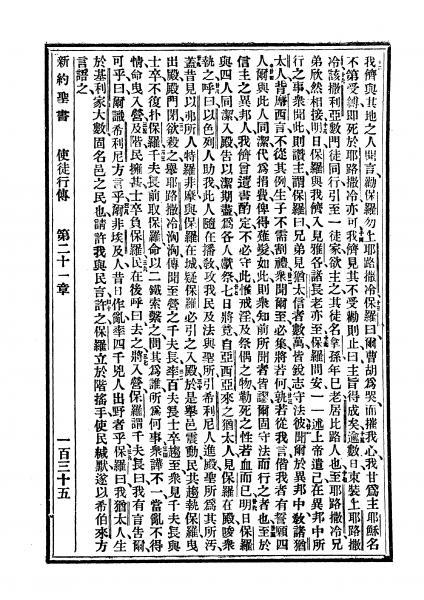 我儕與其地之人聞言勸保羅勿上耶路撒冷保羅曰爾曹胡爲哭而摧我心我甘爲主耶穌名
不第受縛卽死於耶路撒冷亦可我儕見其不受勸則止曰主旨得成矣逾數日束裝上耶路撒
冷該撒利亞數門徒同行引至一徒家欲主之其徒名拿孫年已老居比路人也至耶路撒冷兄
弟欣然相接明日保羅與我儕入見雅各諸長老亦至保羅問安一一述上帝遣己在異邦中所
行之事衆聞此則讚主謂保羅曰兄弟見猶太信者數萬皆銳志守法彼聞爾於異邦中敎諸猶
太人背摩西言不從其例生子不需割禮衆聞爾至必集將若何孰若從我言偕我者有誓願四
人爾與此人同潔代爲捐費俾得薙髮如此則衆知前所聞者皆謬爾固守法而行之者也至於
信主之異邦人我儕曾遺書酌定不必守此惟戒淫及祭偶之物勒死之牲若血而已明日保羅
與四人同潔入殿告以潔期盡爲各人獻祭七日將竟自亞西亞來之猶太人見保羅在殿唆衆
執之呼曰以色列人助我此人隨在播敎攻我民及法與聖所引希利尼人進殿聖所爲其所汚
蓋昔見以弗所人特羅非摩與保羅在城疑保羅必引之入殿於是舉邑震動民其趨執保羅曳
出殿殿門閉欲殺之舉耶路撒冷洶洶傳聞至營之千夫長率百夫長士卒趨至衆見千夫長與
士卒不復扑保羅千夫長前取保羅命以二鐵索繫之問其爲誰所爲何事衆譁不一當亂不得
情命曳入營及階民擁甚士卒負保羅民在後呼曰去之將入營保羅謂千夫長曰我有言告爾
可乎曰爾識希利尼方言乎爾非埃及人昔日作亂率四千兇人出野者乎保羅曰我猶太人生
於基利家大數固名邑之民也請許我與民言許之保羅立於階搖手使民緘默遂以希伯來方
言語之
新約聖書 使徒行傳 第二十一章 一百三十五